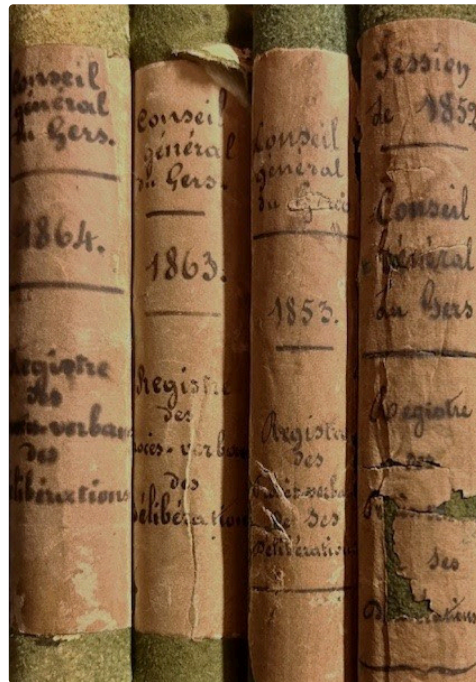 Conseil
général
du Gers.
1864.
Registre
des
procès-verbaux
des
délibérations
Conseil
général
du Gers.
1863.
Registre
des
procès-verbaux
des
délibérations
Conseil
général
du Gers
1853.
Registre
des
Procès-verbaux
de ses
Délibérations
Session
de 1852
Conseil
Général
du Gers
Registre
des
de ses
Délibérations